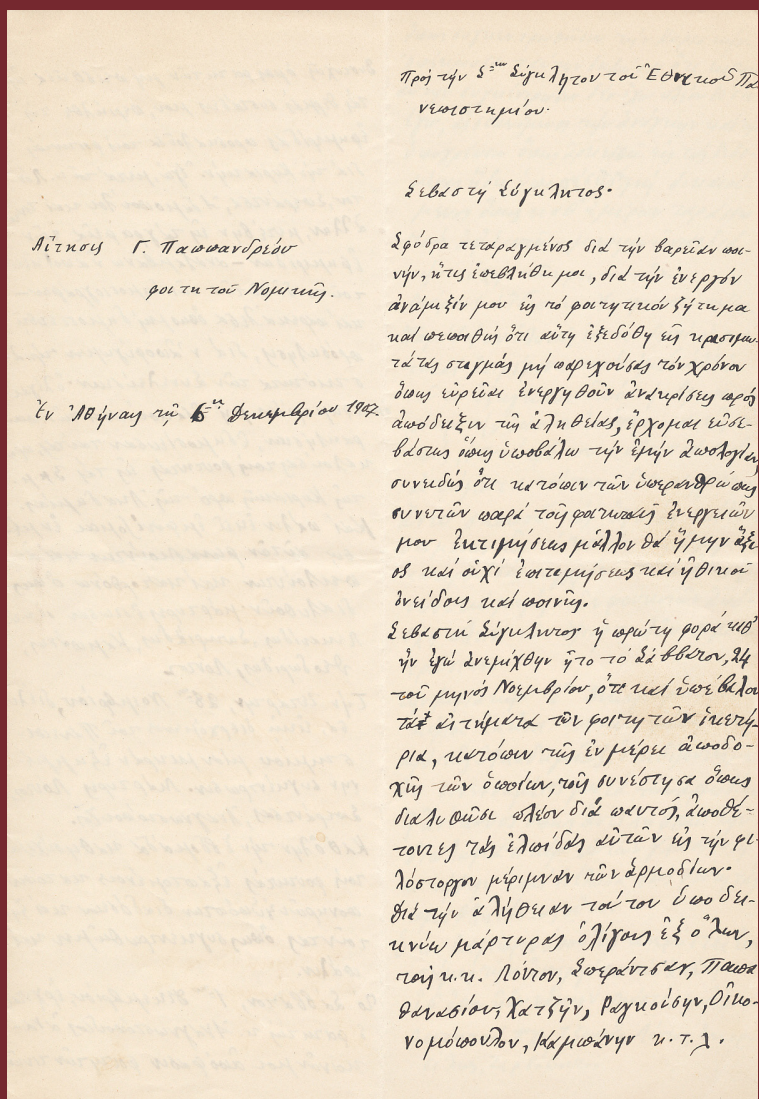 Πρὸς τὴν Σ<sup>τὴν</sup> Σύγκλητον τοῦ Ἐθνικοῦ Πα
νεπιστημίου.
Σεβαστὴ Σύγκλητος.
Αἴτησις Γ. Παπανδρέου
φοιτητοῦ Νομικῆς.
Ἐν Ἀθήναις τῇ 6<sup>ῃ</sup> Δεκεμβρίου 1907
Σφόδρα τεταραγμένος διὰ τὴν βαρεῖαν ποι-
νήν, ἥτις ἐπεβλήθη μοι, διὰ τὴν ἐνεργόν
ἀνάμιξίν μου εἰς τὸ φοιτητικόν ζήτημα
καὶ πεποιθὼς ὅτι αὕτη ἐξεδόθη εἰς κρισιμω-
τάτας στιγμὰς μὴ παρεχούσας τὸν χρόνον
ὅπως εὐρεῖαι ἐνεργηθοῦν ἀνακρίσεις πρὸς
ἀπόδειξιν τῆς ἀληθείας, ἔρχομαι εὐσε-
βάστως ὅπως ὑποβάλω τὴν ἐμὴν ἀπολογίαν
συνειδὼς ὅτι κατόπιν τῶν ὑπερανθρώπως
συνετῶν παρὰ τοῖς φοιτηταῖς ἐνεργειῶν
μου ἐκτιμήσεως μᾶλλον θὰ ἤμην ἄξι
ος καὶ οὐχὶ ἐπιτιμήσεως καὶ ἠθικοῦ
ὀνείδους καὶ ποινῆς.
Σεβαστὴ Σύγκλητος ἡ πρώτη φορὰ καθ'
ἣν ἐγὼ ἀνεμίχθην ἦτο τὸ Σάββατον, 24
τοῦ μηνὸς Νοεμβρίου, ὅτε καὶ ὑπέβαλον
τὰ αἰτήματα τῶν φοιτητῶν ἱκετή-
ρια, κατόπιν τῆς ἐν μέρει ἀποδο-
χῆς τῶν ὁποίων, τοῖς συνέστησα ὅπως
διαλυθῶσι πλέον διὰ παντός, ἀποθέ-
τοντες τὰς ἐλπίδας αὐτῶν εἰς τὴν φι-
λόστοργον μέριμναν τῶν ἁρμοδίων.
Διὰ τὴν ἀλήθειαν τούτου ὑποδει-
κνύω μάρτυρας ὀλίγους ἐξ ὅλων,
τοὺς κ.κ. Λόντον, Σπεράντσαν, Παπα
θανασίου, Χατζῆν, Ραγκούσην, Οἰκο-
νομόπουλον, Καμπάνην κ.τ.λ.